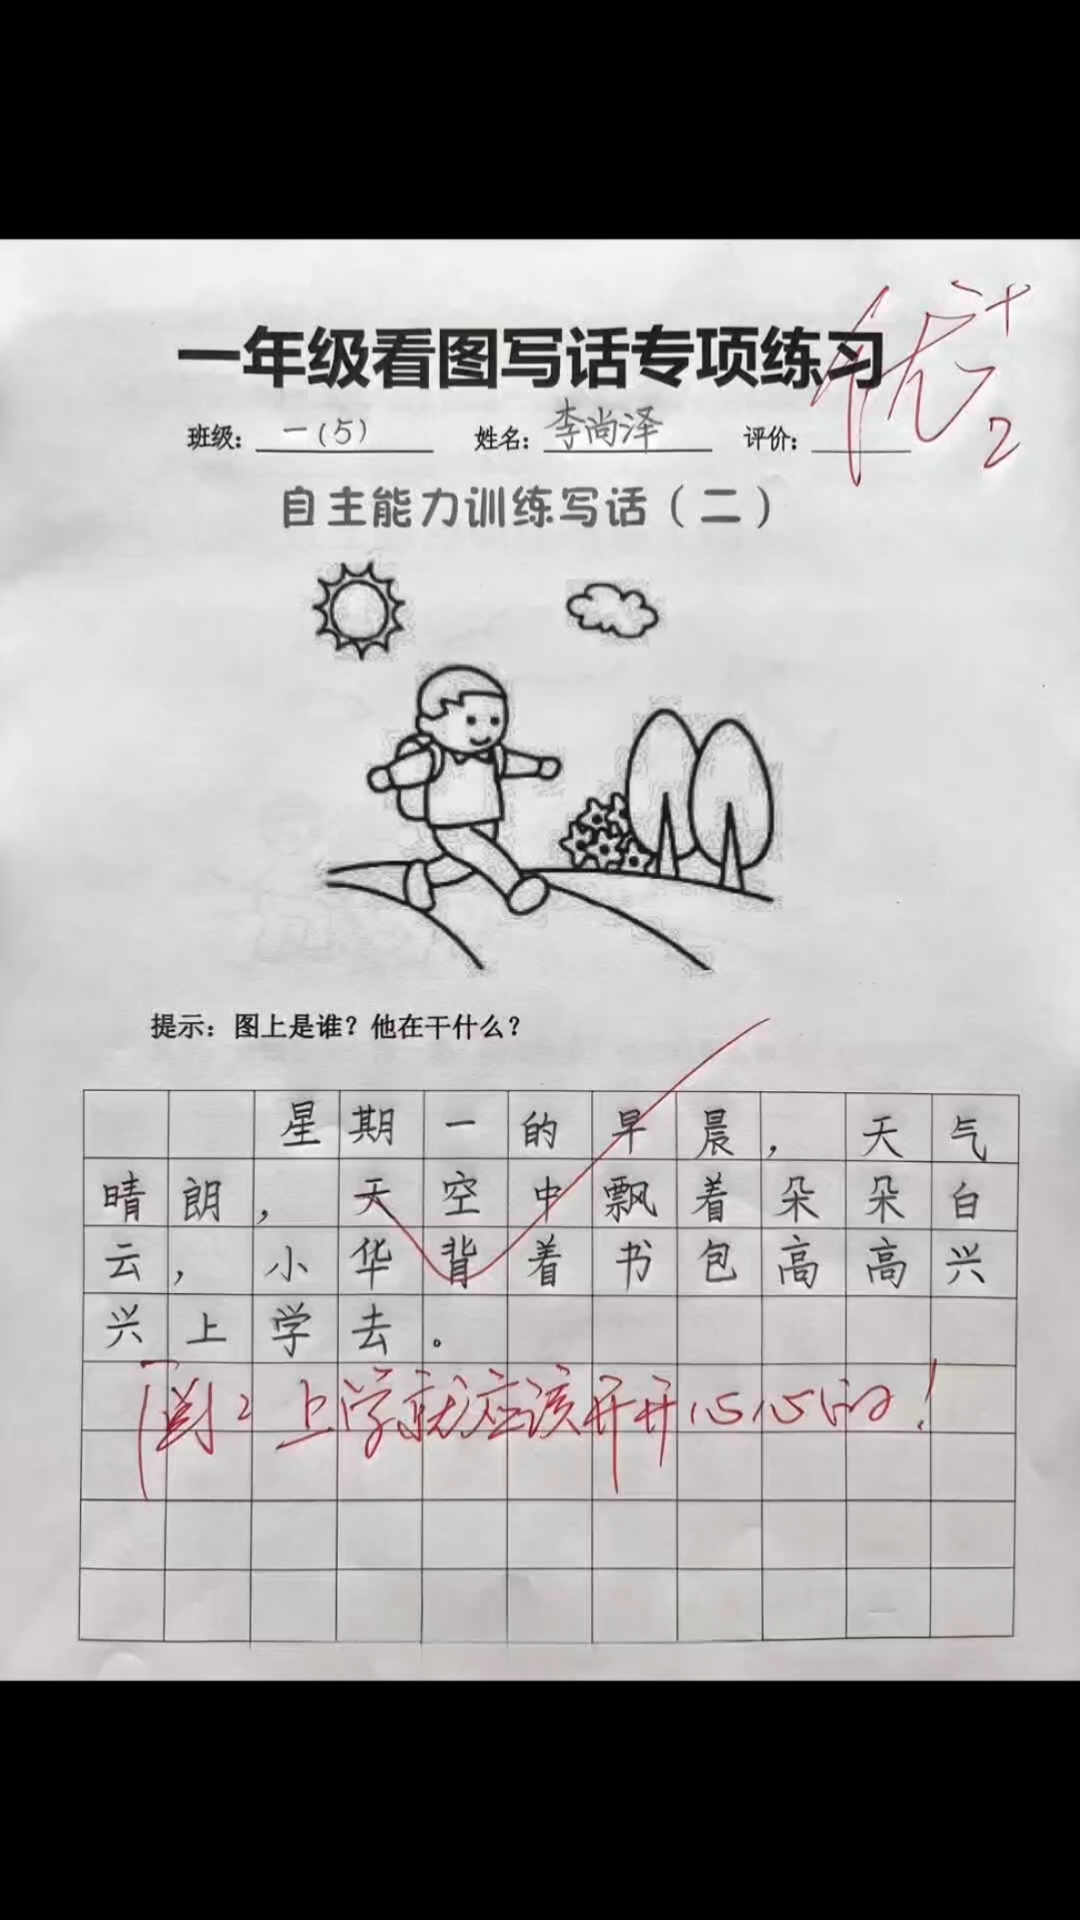 一年级看图写话专项练习
优+
2
班级：一(5) 姓名：李尚泽 评价：
自主能力训练写话（二）
提示：图上是谁？他在干什么？
星期一的早晨，天气
晴朗，天空中飘着朵朵白
云，小华背着书包高高兴
兴上学去。
上学就应该开开心心的！